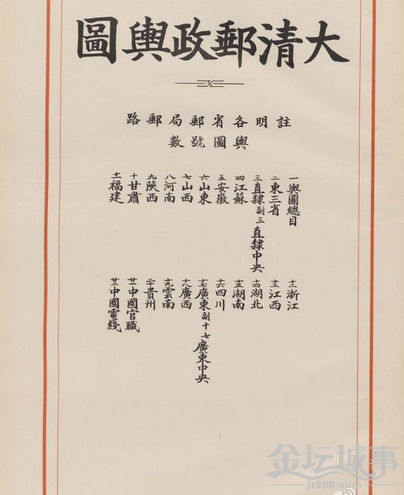 大清郵政輿圖
註明各省郵局郵路
輿圖號數
一輿圖總目
二東三省
三直隸副三直隸中央
四江蘇
五安徽
六山東
七山西
八河南
九陝西
十甘肅
十一福建
十二浙江
十三江西
十四湖北
十五湖南
十六四川
十七廣東副十七廣東中央
十八廣西
十九雲南
二十貴州
廿一中國官職
廿二中國電綫
金坛城事
jt800.com